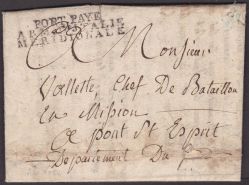 PORT PAYÉ
ARM. D'ITALIE
MERIDIONALE
A Monsieur
Vallette, Chef De Bataillon
En Mission
Ce pont St Esprit
Departement Du